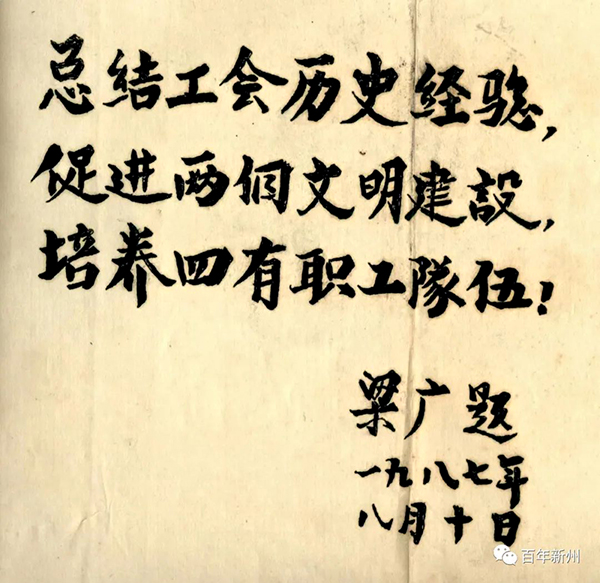 总结工会历史经验，
促进两个文明建設，
培养四有职工隊伍！
梁广题
一九八七年
八月十日
百年新州